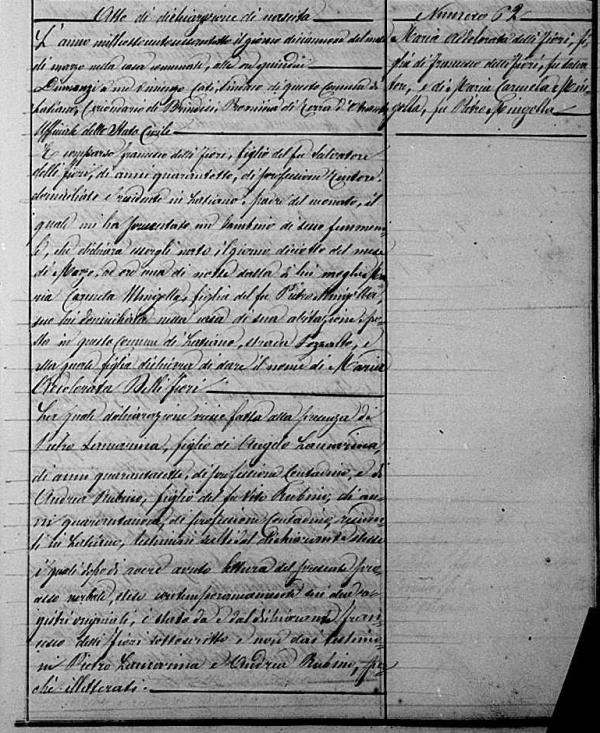 Atto di dichiarazione di nascita
L'anno mille ottocento sessantotto il giorno diciannove del mese
di Marzo nella casa comunale, alle ore quindici
Dinanzi a me Cati, Sindaco di questo Comune di
Latiano, Circondario di Brindisi Provincia di Terra d'Otranto
Uffiziale dello Stato Civile
È comparso Francesco delli Fiori, figlio del fu Salvatore
delli Fiori, di anni quarantotto, di professione
domiciliato e residente in Latiano, padre del neonato, il
quale mi ha presentato un bambino di sesso femmini-
le, che dichiara essergli nato il giorno diciotto del mese
di Marzo, ad ore una di notte dalla di lui moglie Ma-
ria Carmela Mingolla, figlia del fu Pietro Mingolla,
seco lui domiciliata nella casa di sua abitazione, spo-
sta in questo Comune di Latiano, strada e
alla quale figlia dichiara di dare il nome di Maria
Addolorata Delli Fiori
La quale dichiarazione venne fatta alla presenza di
Pietro Lamarina, figlio di Angelo Lamarina,
di anni quarantasette, di professione Contadino, e di
Andrea Rubino, figlio del fu Vito Rubino, di an-
ni quarantanove, di professione Contadino, residen-
ti in Latiano, testimoni scelti dal dichiarante stesso
i quali dopo di avere avuto lettura del presente pro-
cesso verbale, steso contemporaneamente sui due re-
gistri originali, è stato da e dal dichiarante Fran-
cesco delli Fiori sottoscritto e non dai testimo-
ni Pietro Lamarina e Andrea Rubino, per-
ché illetterati.
Numero 62
Maria Addolorata delli Fiori, fi-
glia di Francesco delli Fiori, fu Salva-
tore, e di Maria Carmela Min-
golla, fu Pietro Mingolla